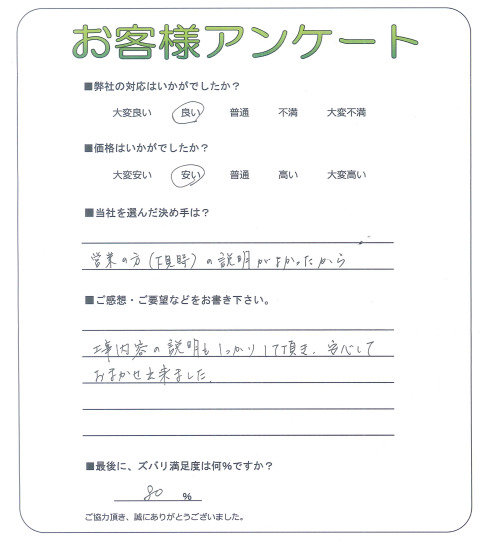 お客様アンケート
■弊社の対応はいかがでしたか?
大変良い 良い 普通 不満 大変不満
■価格はいかがでしたか?
大変安い 安い 普通 高い 大変高い
■当社を選んだ決め手は?
営業の方(下見時)の説明がよかったから
■ご感想・ご要望などをお書き下さい。
工事内容の説明もしっかりして頂き、安心して
おまかせ出来ました。
■最後に、ズバリ満足度は何%ですか?
80 %
ご協力頂き、誠にありがとうございました。